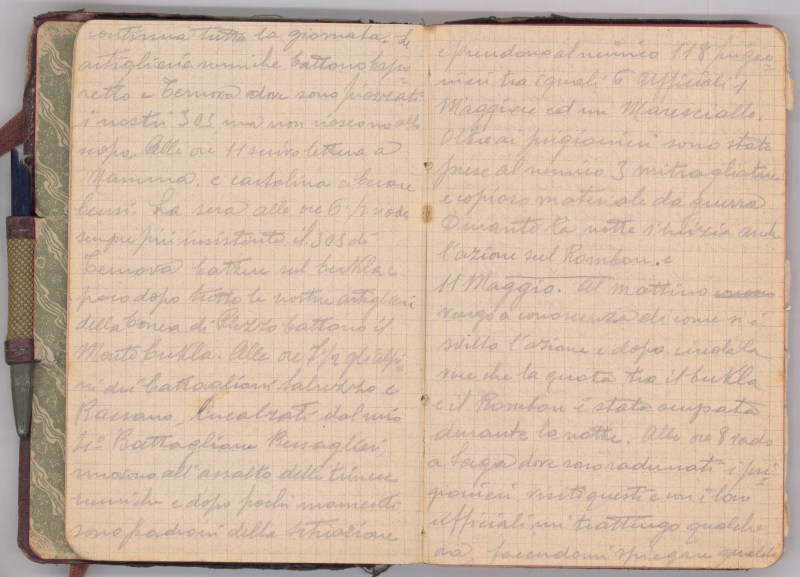 continua tutta la giornata. Le
artiglierie nemiche battono Capo
retto e Ternova dove sono piazzati
i nostri 305 ma non riescono allo
scopo. Alle ore 11 scrivo lettera a
Mamma, e cartolina a Cesare
La sera alle ore 6 si ode
sempre più insistente il 305 di
Ternova battere sul Cukla e
poco dopo tutte le nostre artiglieri
della Conca di Plezzo battono il
Monte Cukla. Alle ore 7½ gli alpi
ni dei Battaglioni Saluzzo e
Bassano, incalzati dal mio
Battaglione Bersaglieri,
muovono all'assalto delle trincee
nemiche e dopo pochi momenti
sono padroni della situazione
e prendono al nemico 118 prigio
nieri tra i quali 6 Ufficiali 1
Maggiore ed un Maresciallo.
Oltre ai prigionieri sono state
prese al nemico 3 mitragliatrici
e copioso materiale da guerra.
Durante la notte s'inizia anche
l'azione sul Rombon. e
11 Maggio. Al mattino
vengo a conoscenza di come si è
svolta l'azione e dopo circola la
voce che la quota tra il Cukla
e il Rombon è stata occupata
durante la notte. Alle ore 8 vado
a Serga dove sono radunati i pri
gionieri visito questi e con i loro
ufficiali mi trattengo qualche
ora, facendomi spiegare qualche